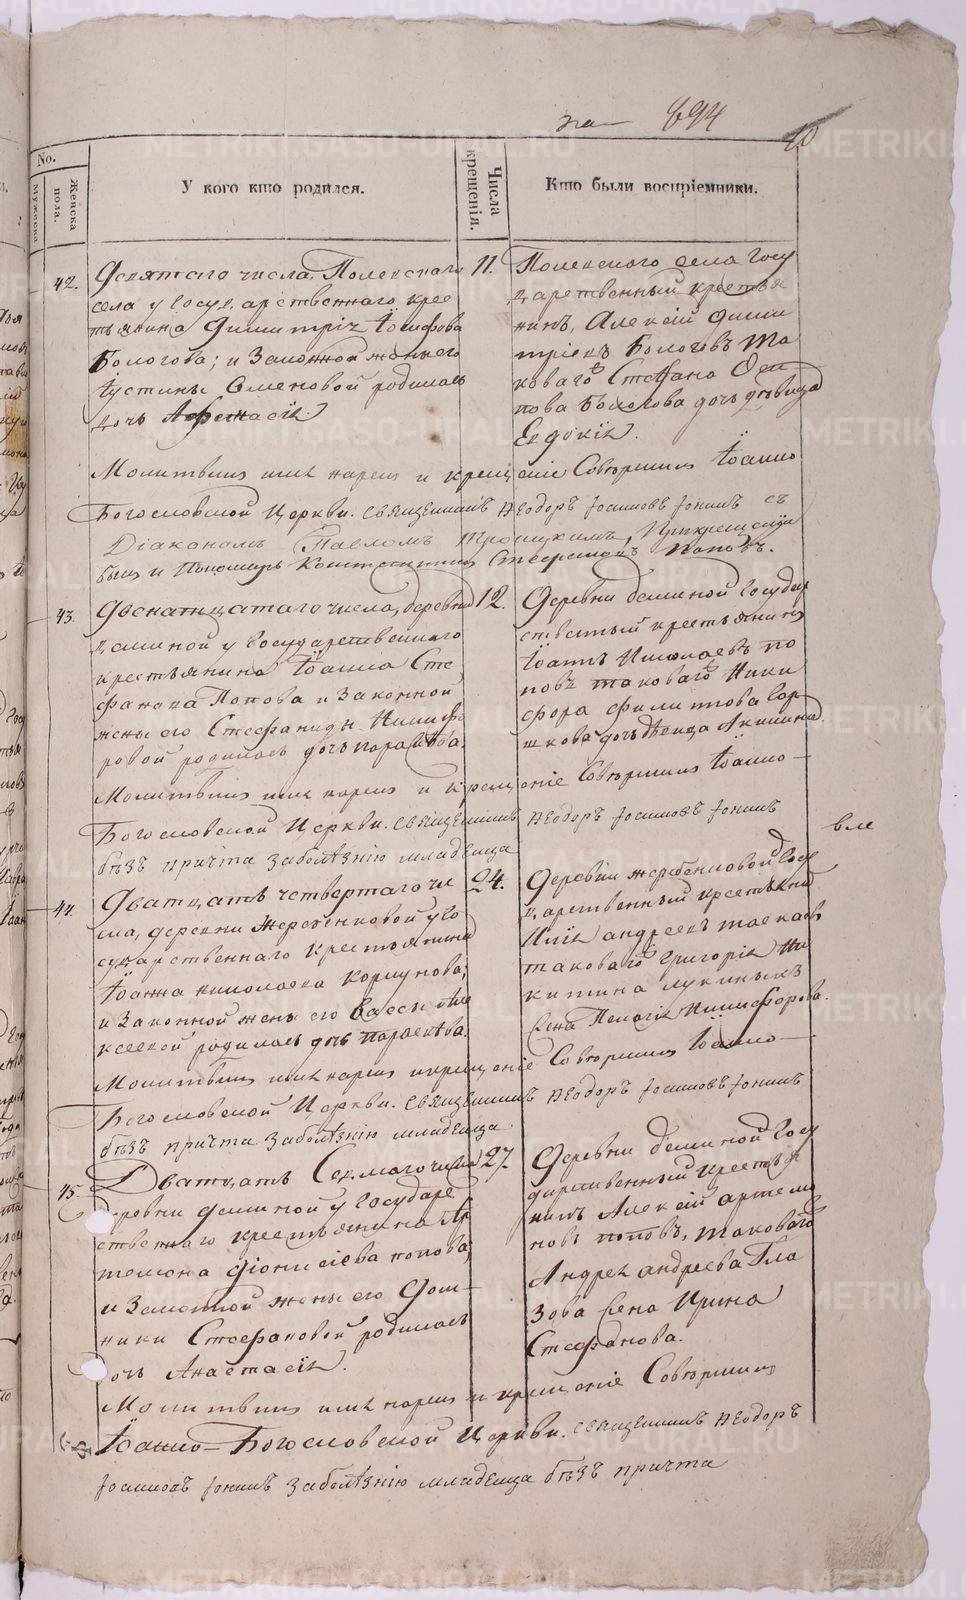 на 894
10
No.
Мужеска
Женска
пола.
У кого кто родился.
Числа
крещенія.
Кто были воспріемники.
42.
Девятаго числа, Полевскаго
села у Государственнаго крес
тьянина Димитрія Іосифова
Бологова; и Законной жены его
Іустины Семеновой родилась
дочь Афанасія
11.
Полевского села Госу
дарственный крестья
нинъ, Алексій Дими
тріевъ Бологовъ та
коваго Стефана Оси
пова Бологова дочь дѣвица
Евдокія.
Молитвилъ имя нарекъ и крещеніе Совершилъ Іоанно
Богословской Церкви. священникъ Ѳеодоръ Іоанновъ Іонинъ съ
Діакономъ Павломъ Троицкимъ, Прикрещеніи
былъ и Пономарь Константинъ Стефановъ Поповъ.
43.
Двенатцатаго числа, деревни
деминой у Государственнаго
крестьянина Іоанна Сте
фанова Попова и Законной
жены его Стефаниды Никифо
ровой родилась дочь параскева.
12.
Деревни деминой Государ
ственный крестьянинъ
Іоаннъ Николаевъ по
повъ таковаго Ники
фора филиппова Гор
шкова дочь дѣвица Акилина
Молитвилъ имя нарекъ и крещеніе Совершилъ Іоанно
Богословской Церкви. священникъ Ѳеодоръ Іоанновъ Іонинъ
безъ причта заболѣзнію младенца
вле
44.
Дватцать четвертаго чи
сла, деревни Жеребенковой у Го
сударственнаго крестьянина
Іоанна николаева Коршунова;
и Законной жены его Вассы Але
ксеевой родилась дочь параскева.
24.
Деревни жеребенковой Госу
дарственный крестьянинъ
Илія андреевъ таскаевъ
таковаго Григорія Ни
китина лукиныхъ
жена Пелагія Никифорова.
Молитвилъ имя нарекъ и крещеніе Совершилъ Іоанно
Богословской Церкви. священникъ Ѳеодоръ Іоанновъ Іонинъ
безъ причта заболѣзнію младенца
45.
Дватцать Седмаго числа
деревни деминой у Государ
ственнаго крестьянина Ар
темона Діонисіева попова;
и Законной жены его Дом
ники Стефановой родилась
дочь Анастасія.
27.
Деревни деминой Госу
дарственный крестья
нинъ Алексій артемо
новъ поповъ, таковаго
Андрея андреева Гла
зова жена Ирина
Стефанова.
Молитвилъ имя нарекъ и крещеніе Совершилъ
Іоанно-Богословской Церкви. священникъ Ѳеодоръ
Іоанновъ Іонинъ заболѣзнію младенца безъ причта
METRIKI.GASO-URAL.RU